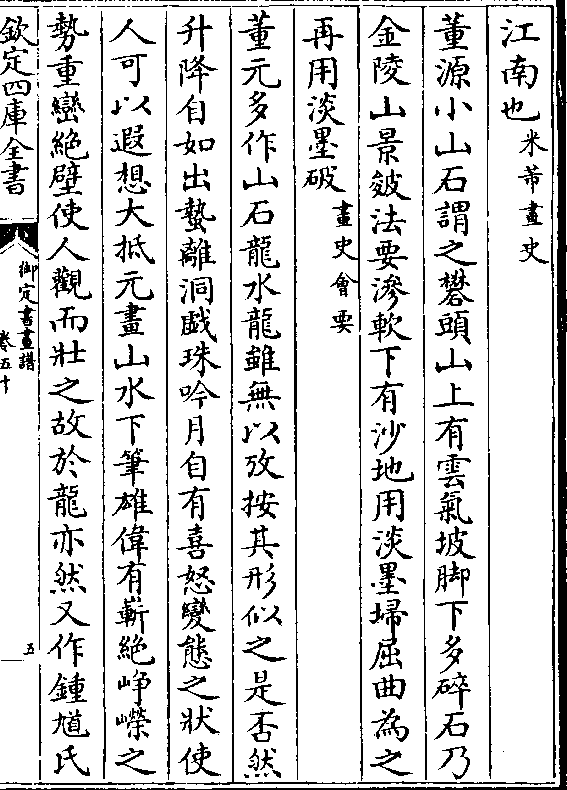 江南也米芾畫史
董源小山石謂之礬頭山上有雲氣坡脚下多碎石乃
金陵山景皴法要滲軟下有沙地用淡墨埽屈曲為之
再用淡墨破畫史會要
董元多作山石龍水龍雖無以攷按其形似之是否然
升降自如出蟄離洞戲珠吟月自有喜怒變態之狀使
人可以遐想大抵元畫山水下筆雄偉有嶄絶崢嶸之
勢重巒絶壁使人觀而壯之故於龍亦然又作鍾馗氏
欽定四庫全書
御定書畫譜
卷五十
五